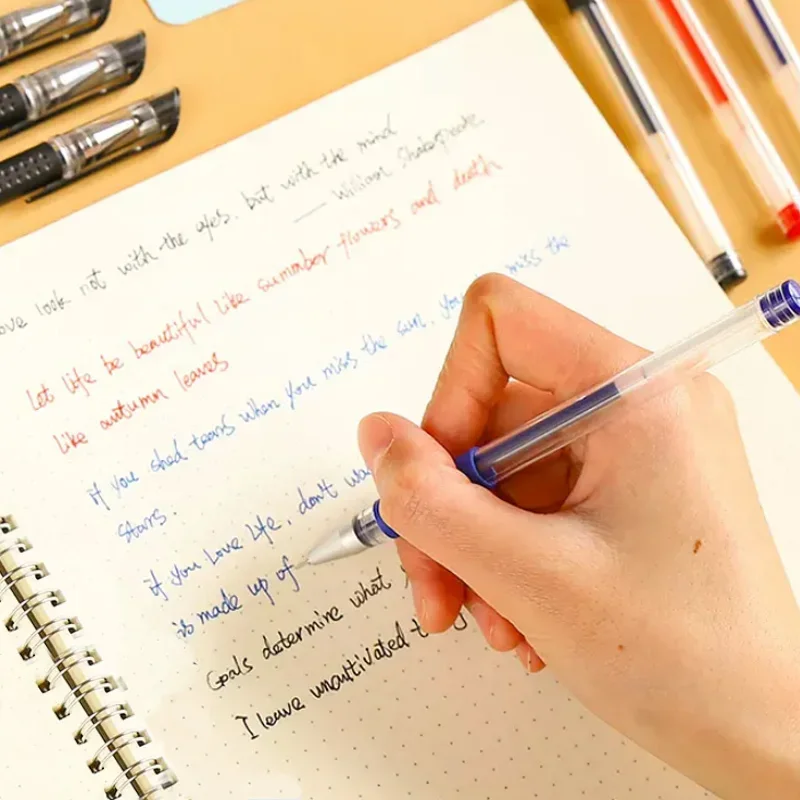 ove look not with the eyes. but with the mind
— William Shakespeare
Let life be beautiful like summber flowers and death
like autumn leaves
if you shed tears when you miss the sun. you miss the
stars.
if you Love Life, don't wa
is made up of
Goals determine what
I leave